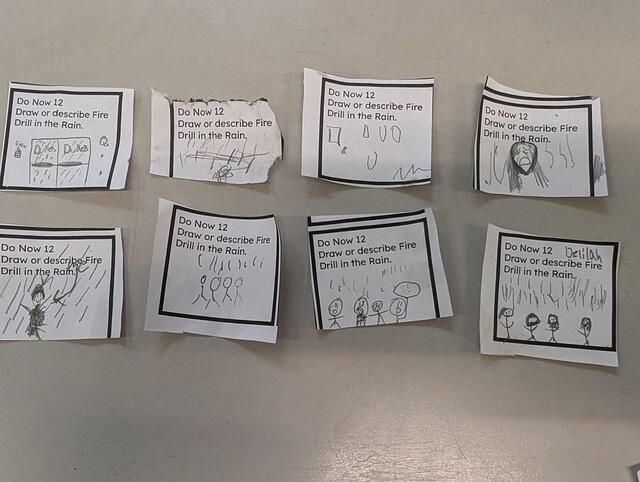 Do Now 12
Draw or describe Fire
Drill in the Rain.
Do Now 12
Draw or describe Fire
Drill in the Rain.
Do Now 12
Draw or describe Fire
Drill in the Rain.
Do Now 12
Draw or describe Fire
Drill in the Rain.
Do Now 12
Draw or describe Fire
Drill in the Rain.
me
Do Now 12
Draw or describe Fire
Drill in the Rain.
Do Now 12
Draw or describe Fire
Drill in the Rain.
Do Now 12 Delilah
Draw or describe Fire
Drill in the Rain.